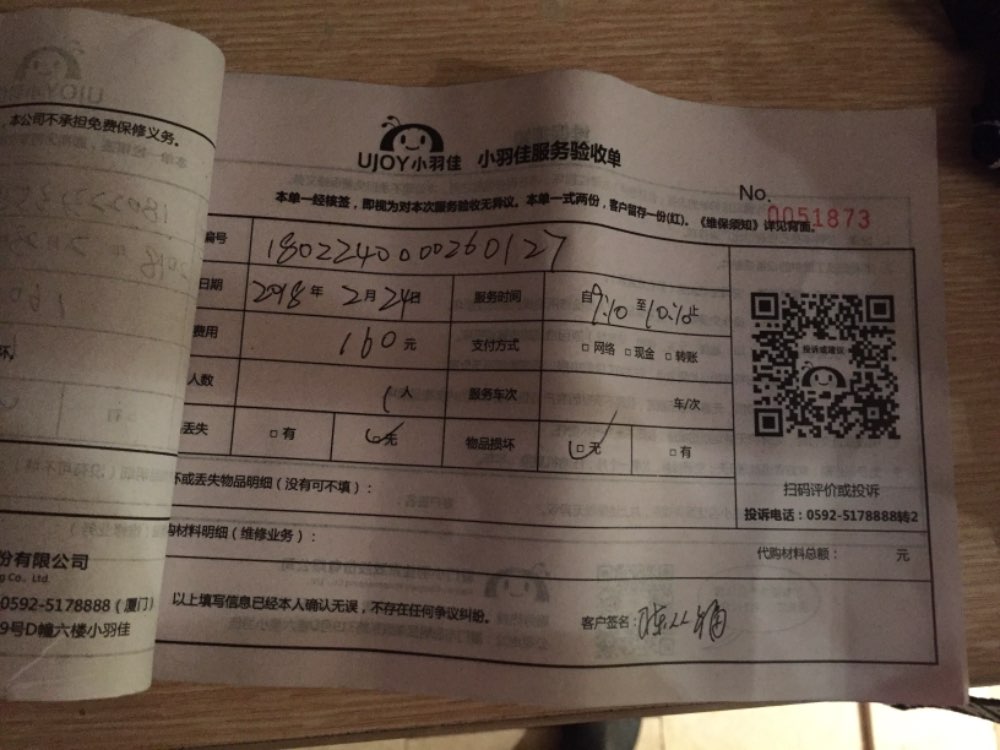 本公司不承担免费保修义务。
UJOY小羽佳 小羽佳服务验收单
No.
0051873
本单一经核签，即视为对本次服务验收无异议。本单一式两份，客户留存一份(红)。《维保须知》详见背面。
编号 1802240000260127
日期 2018年2月24日 服务时间 自9:10至10:10止
费用 160元 支付方式 □网络 □现金 □转账
人数 1人 服务车次 车/次
丢失 □有 □无 物品损坏 □无 □有
投诉或建议
扫码评价或投诉
投诉电话：0592-5178888转2
坏或丢失物品明细（没有可不填）：
购材料明细（维修业务）：
代购材料总额： 元
以上填写信息已经本人确认无误，不存在任何争议纠纷。
客户签名：
份有限公司
g Co., Ltd.
0592-5178888（厦门）
9号D幢六楼小羽佳